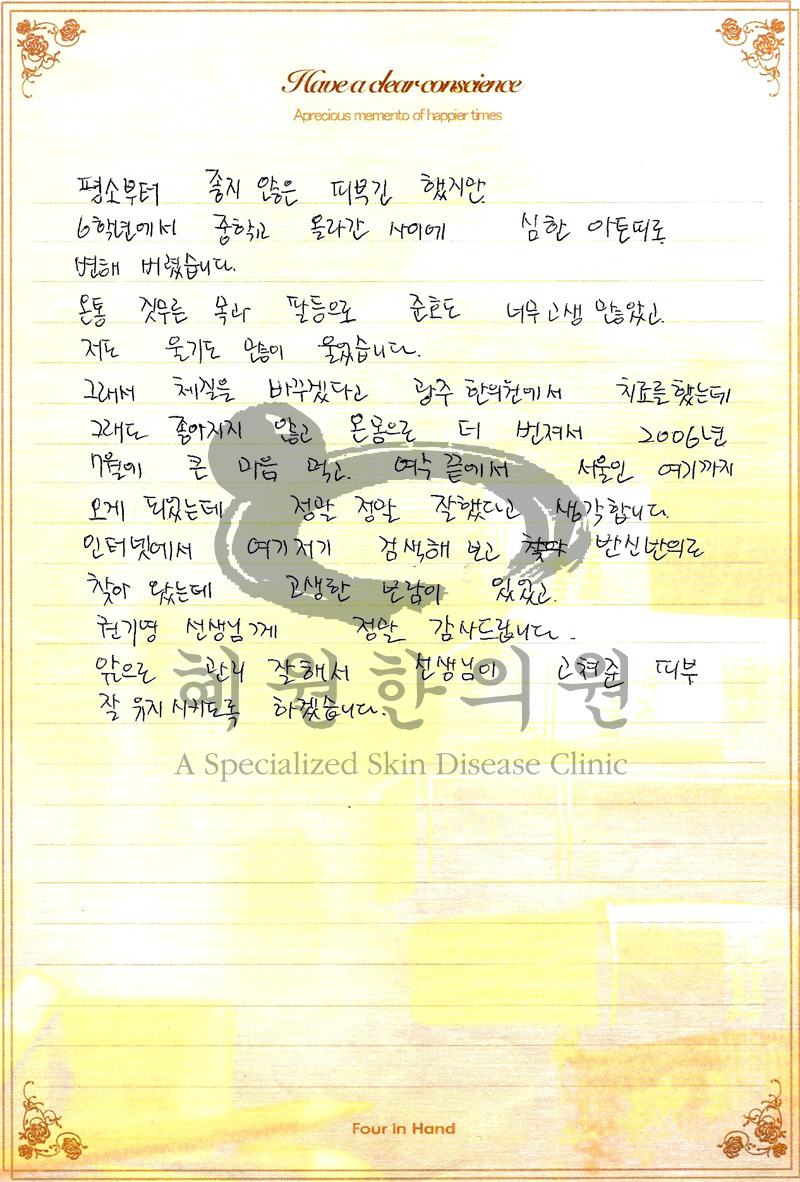 Have a clear conscience
Aprecious memento of happier times
평소부터 좋지 않은 피부긴 했지만
6학년에서 중학교 올라간 사이에 심한 아토피로
변해 버렸습니다.
온통 짓무른 목과 팔등으로 준호도 너무 고생 많았고.
저도 울기도 많이 울었습니다.
그래서 체질을 바꾸겠다고 광주 한의원에서 치료를 했는데
그래도 좋아지지 않고 온몸으로 더 번져서 2006년
7월에 큰 마음 먹고. 여수 끝에서 서울인 여기까지
오게 되었는데 정말 정말 잘했다고 생각합니다.
인터넷에서 여기저기 검색해 보고 반신반의로
찾아 왔는데 고생한 보람이 있었고.
권기영 선생님께 정말 감사드립니다.
앞으로 관리 잘해서 선생님이 고쳐준 피부
잘 유지시키도록 하겠습니다.
혜원한의원
A Specialized Skin Disease Clinic
Four in Hand